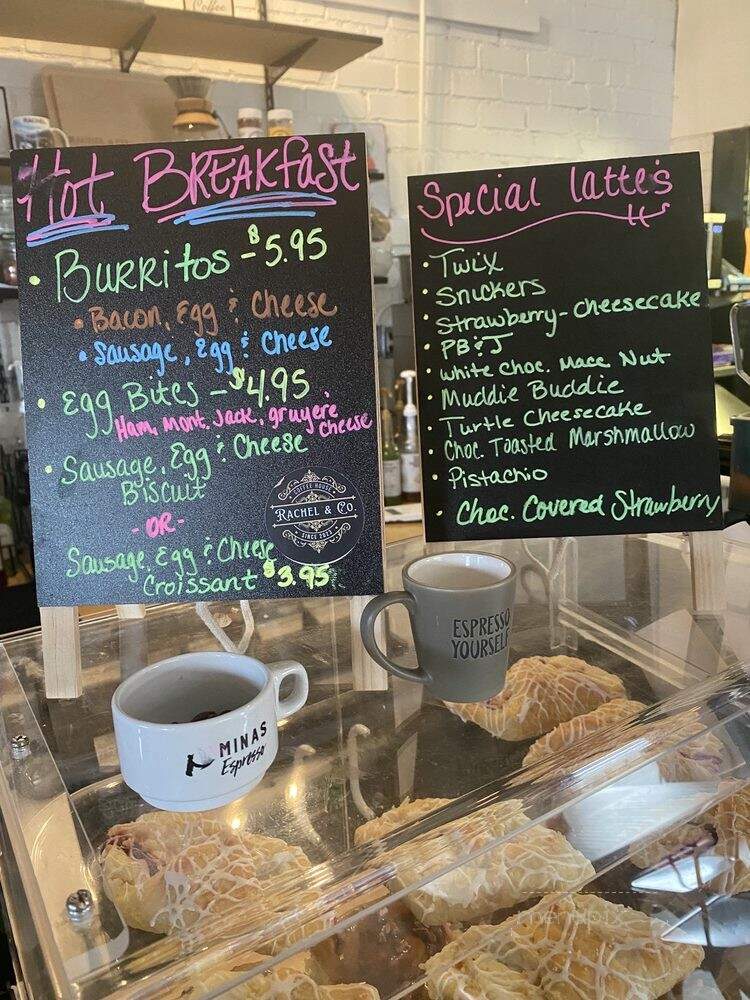 Coffee
Hot BREAKfast
• Burritos - $5.95
• Bacon, Egg & Cheese
• Sausage, Egg & Cheese
• Egg Bites - $4.95
Ham, Mont. Jack, gruyere
cheese
• Sausage, Egg & Cheese
Biscuit
- OR -
Sausage, Egg & Cheese
Croissant $3.95
COFFEE HOUSE
RACHEL & CO.
SINCE 2023
Special latte's
• Twix
• Snickers
• Strawberry-Cheesecake
• PB&J
• White choc. Macc Nut
• Muddie Buddie
• Turtle Cheesecake
• Choc. Toasted Marshmallow
• Pistachio
• Choc. Covered Strawberry
ESPRESSO
YOURSELF
MINAS
Espresso